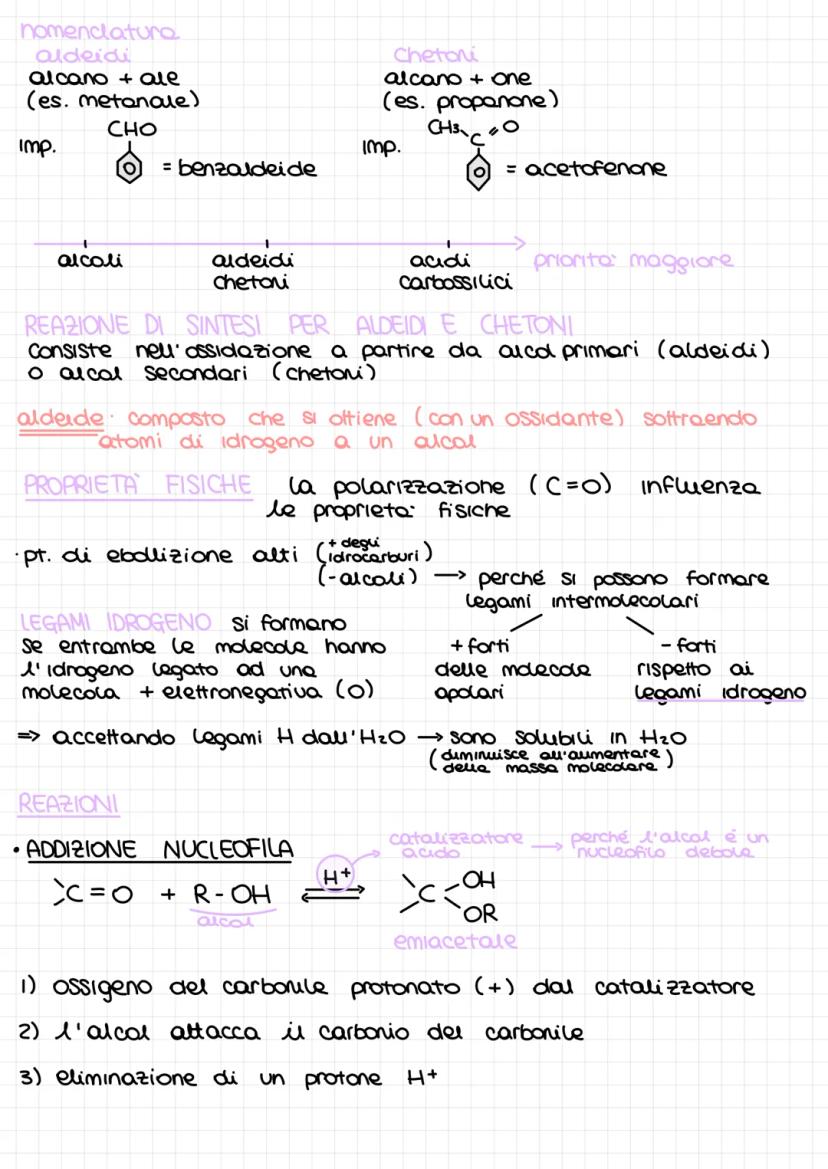 nomenclatura
aldeidi
alcano + ale
(es. metanale)
CHO
imp.
= benzaldeide
Chetoni
alcano + one
(es. propanone)
CH3 C = O
imp.
= acetofenone
alcoli
aldeidi
chetoni
acidi
carbossilici
priorità maggiore
REAZIONE DI SINTESI PER ALDEIDI E CHETONI
Consiste nell'ossidazione a partire da alcol primari (aldeidi)
o alcol secondari (chetoni)
aldeide: composto che si ottiene (con un ossidante) sottraendo
atomi di idrogeno a un alcol
PROPRIETÀ FISICHE la polarizzazione (C=O) influenza
le proprietà fisiche
· pt. di ebollizione alti (+ degli idrocarburi)
(-alcoli) → perché si possono formare
legami intermolecolari
LEGAMI IDROGENO si formano
se entrambe le molecole hanno
l'idrogeno legato ad una
molecola + elettronegativa (O)
+ forti
delle molecole
apolari
- forti
rispetto ai
legami idrogeno
=> accettando legami H dall'H2O → sono solubili in H2O
(diminuisce all'aumentare
della massa molecolare)
REAZIONI
• ADDIZIONE NUCLEOFILA
catalizzatore
acido
→ perché l'alcol è un
nucleofilo debole
C=O + R-OH H+ C OH
OR
alcol
emiacetale
1) ossigeno del carbonile protonato (+) dal catalizzatore
2) l'alcol attacca il carbonio del carbonile
3) eliminazione di un protone H+